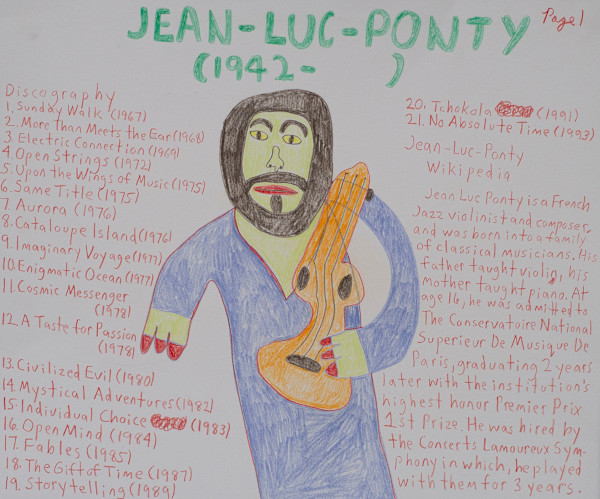 JEAN-LUC-PONTY
(1942-      )
Page 1
Discography
1. Sunday Walk (1967)
2. More Than Meets the Ear (1968)
3. Electric Connection (1969)
4. Open Strings (1972)
5. Upon the Wings of Music (1975)
6. Same Title (1975)
7. Aurora (1976)
8. Cataloupe Island (1976)
9. Imaginary Voyage (1977)
10. Enigmatic Ocean (1977)
11. Cosmic Messenger
(1978)
12. A Taste for Passion
(1978)
13. Civilized Evil (1980)
14. Mystical Adventures (1982)
15. Individual Choice (1983)
16. Open Mind (1984)
17. Fables (1985)
18. The Gift of Time (1987)
19. Storytelling (1989)
20. Tchokola (1991)
21. No Absolute Time (1993)
Jean-Luc-Ponty
Wikipedia
Jean Luc Ponty is a French
Jazz violinist and composer,
and was born into a family
of classical musicians. His
father taught violin, his
mother taught piano. At
age 16, he was admitted to
The Conservatoire National
Superieur De Musique De
Paris, graduating 2 years
later with the institution's
highest honor Premier Prix
1st Prize. He was hired by
the Concerts Lamoureux Sym-
phony in which, he played
with them for 3 years.